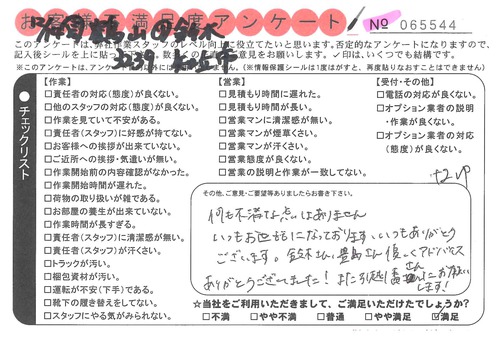 お客様満足度アンケート
No 065544
このアンケートは、弊社作業スタッフのレベル向上に役立てたいと思います。否定的なアンケートになりますので、
記入後シールを上に貼って
意見をお願いします。✓印は、いくつでも結構です。
※このアンケートは、
外には
(※情報保護シールは1度はがすと、再度貼りなおすことはできません)
チェックリスト
【作業】
□責任者の対応(態度)が良くない。
□他のスタッフの対応(態度)が良くない。
□作業を見ていて不安がある。
□責任者(スタッフ)に好感が持てない。
□お客様への挨拶が出来ていない。
□ご近所への挨拶・気遣いが無い。
□作業開始前の内容確認がなかった。
□作業開始時間が遅れた。
□荷物の取り扱いが雑である。
□お部屋の養生が出来ていない。
□作業時間が長すぎる。
□責任者(スタッフ)に清潔感が無い。
□責任者(スタッフ)が汗くさい。
□トラックが汚い。
□梱包資材が汚い。
□運転が不安(下手)である。
□靴下の履き替えをしてない。
□スタッフにやる気がみられない。
【営業】
□見積もりに遅れた。
□見積もり時間が長い。
□営業マンに清潔感が無い。
□営業マンが煙草くさい。
□営業マンが汗くさい。
□営業態度が良くない。
□営業の説明と作業が一致してない。
【受付・その他】
□電話の対応が良くない。
□オプション業者の説明
・作業が良くない。
□オプション業者の対応
(態度)が良くない。
その他、ご意見・ご要望等ありましたらお書き下さい。
何も不満な点はありません
いつもお世話になっております。いつもありがとう
ございます。鈴木さん、豊島さん優しくアドバイス
ありがとうございました!また引越し
さんにお願い
します!
☆当社をご利用いただきまして、ご満足いただけたでしょうか?
□不満 □やや不満 □普通 □やや満足 ☑満足